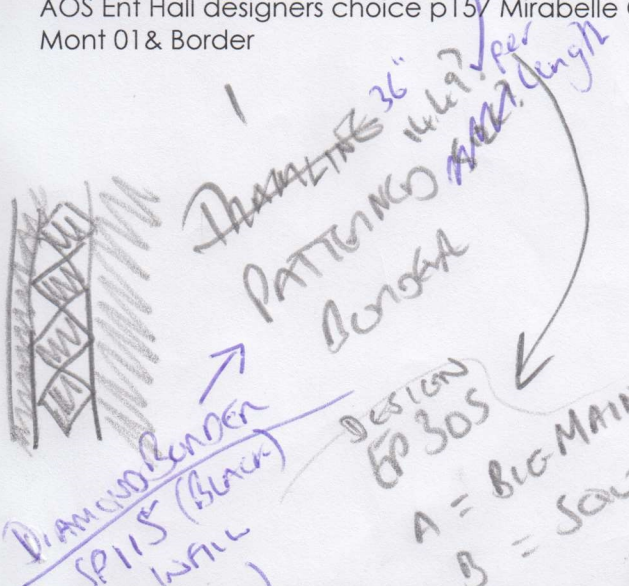 AOS Ent Hall designers choice p157 Mirabelle
Mont 01& Border
36"
14.49? per
length
PATTERNED
BORDER
DIAMOND BORDER
SP115 (BLACK)
INFILL
DESIGN
EP 305
A = BIG MAIN
B =